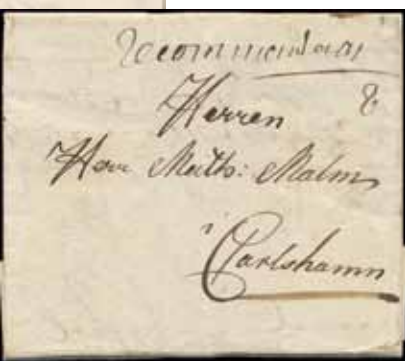 Recommenderas
Herren
Herr Math: Malm
i
Carlshamn